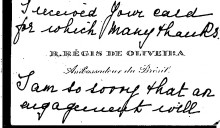 I received your card
for which many thanks.
R. RÉGIS DE OLIVEIRA
Ambassadeur du Brésil.
I am so sorry that an
engagement will